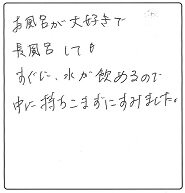 お風呂が大好きで
長風呂しても
すぐに、水が飲めるので
中に持ちこまずにすみました。